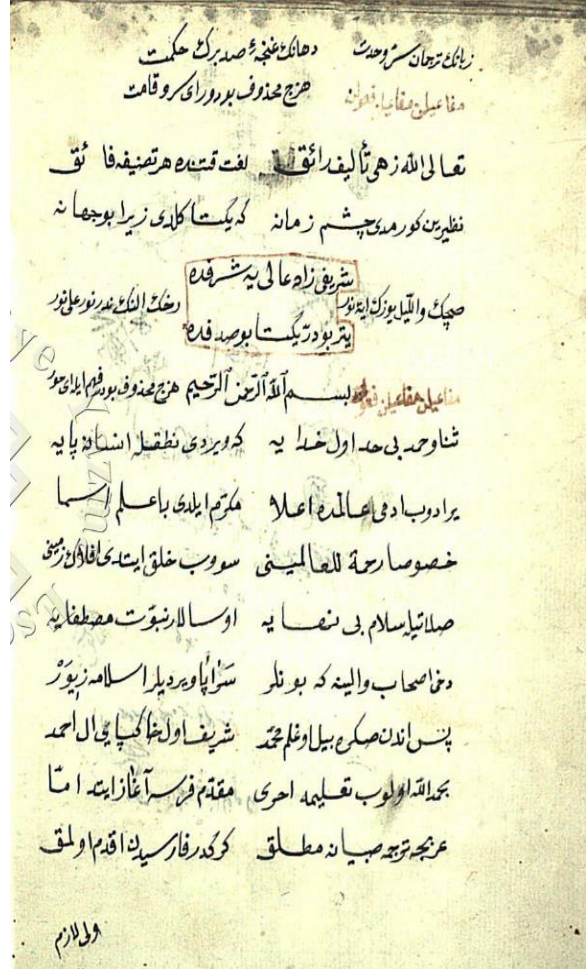 زبانك ترجمان سر وحدت دهانك غنجهٔ صد برك حكمت
مفاعيلن مفاعيلن فعولن هزج محذوف بودور اى سرو قامت
تعالى الله زهى تأليف رائق لغت فتنده هر تصنيفه فائق
نظيرين كورمدى چشم زمانه كه يكتا كلدى زيرا بو جهانه
شريفى زاده عالى يه شرفده
صچك والليل يوزك ايهٔ نور رخك النك ندر نور على نور
يتر بو در يكتا بو صدفده
مفاعيلن مفاعيلن فعولن بسم الله الرحمن الرحيم هزج محذوف بودر فهم ايله اى حور
ثنا وحمد بى حد اول خدايه كه ويردى نطقله انسانه پايه
يرادوب ادمى عالمده اعلا مكرم ايلدى با علم اسما
خصوصا رحمة للعالمينى سووب خلق ايتدى افلاك زمينى
صلاتيله سلام بى نهايه او سالار نبوت مصطفايه
دخى اصحاب والينه كه بونلر سراپا ويرديلر اسلامه زيور
پس اندن صكره بيل اوغلم محمد شريف اول خاكپاى ال احمد
بحمد الله اولوب تعليمه احرى مقدم فرسه آغاز ايتد اما
عربجه ترجمه صبيانه مطلق كركدر فارسيدن اقدم اولمق
ولى لازم